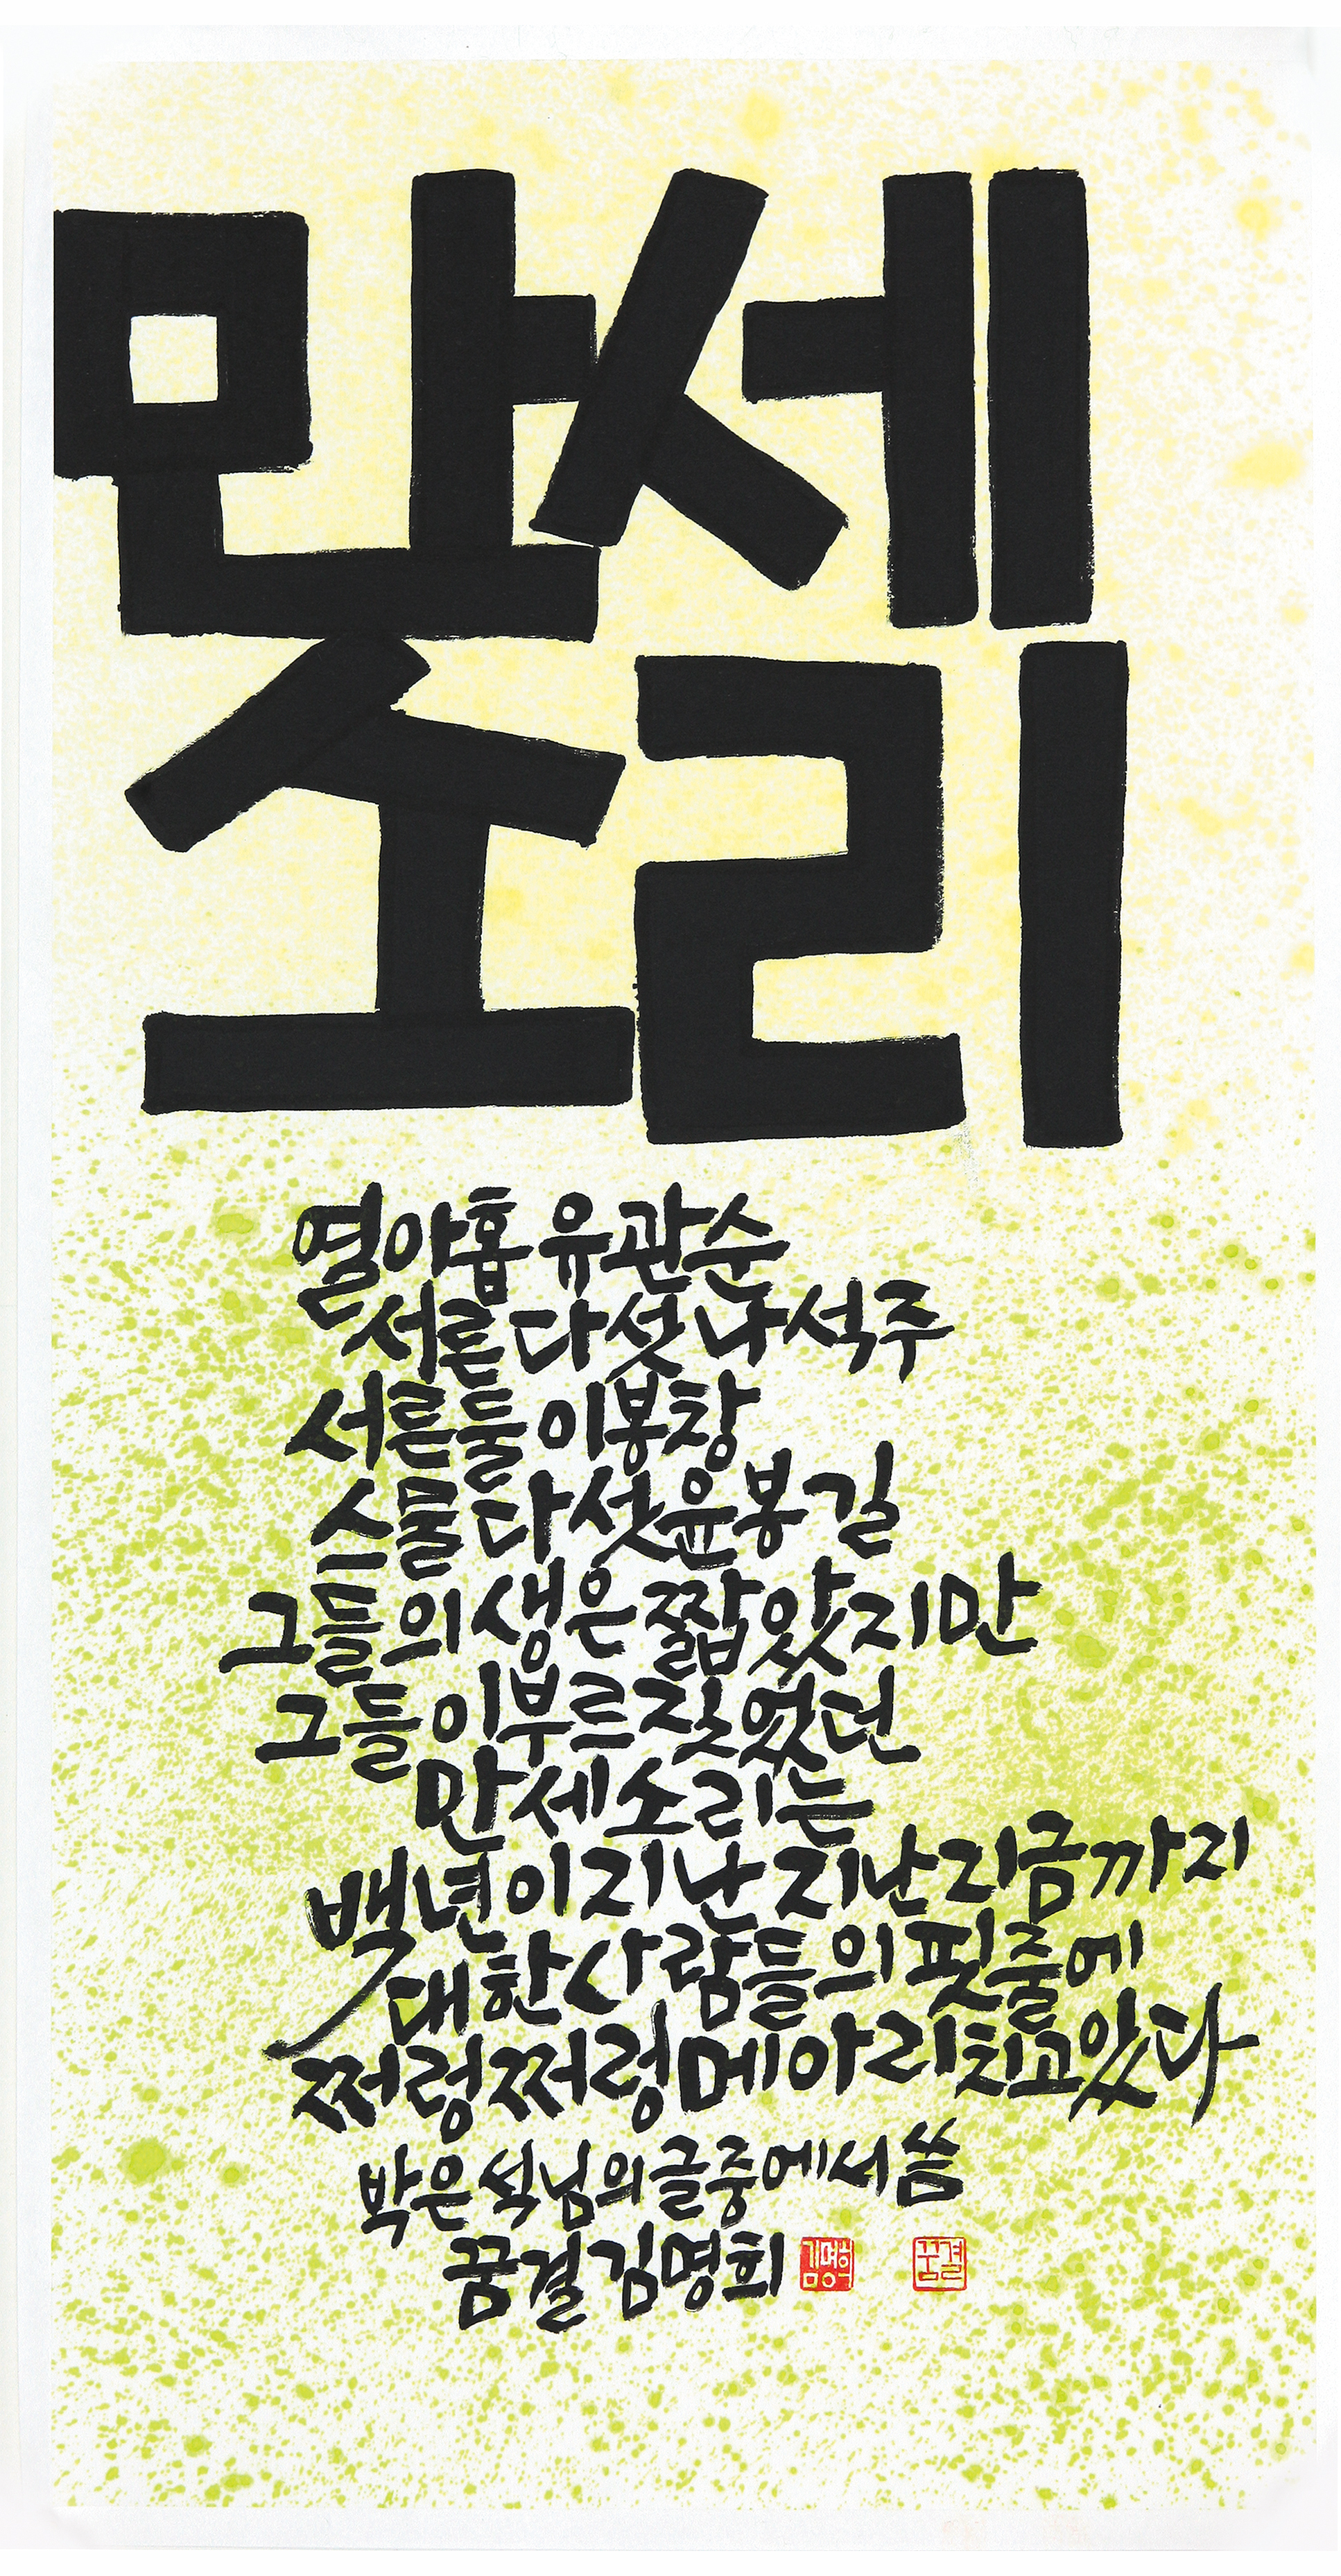 만세
소리
열아홉 유관순
서른다섯 나석주
서른둘 이봉창
스물다섯 윤봉길
그들의 생은 짧았지만
그들이 부르짖었던
만세소리는
백년이 지난 지난 지금까지
대한사람들의 핏줄에
쩌렁쩌렁 메아리치고 있다
박은석님의 글 중에서 씀
꿈결 김명희
김명희
꿈결